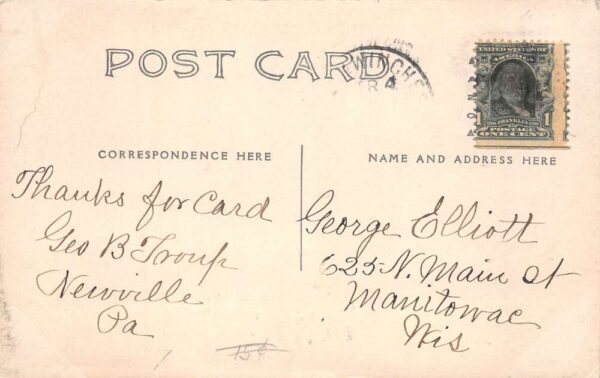 POST CARD
WINCH
R 4
UNITED STATES OF
AMERICA
1 FRANKLIN 1
POSTAGE
ONE CENT
CORRESPONDENCE HERE
NAME AND ADDRESS HERE
Thanks for Card
Geo B Troup
Newville
Pa
15¢
George Elliott
625 N. Main St
Manitowac
Wis